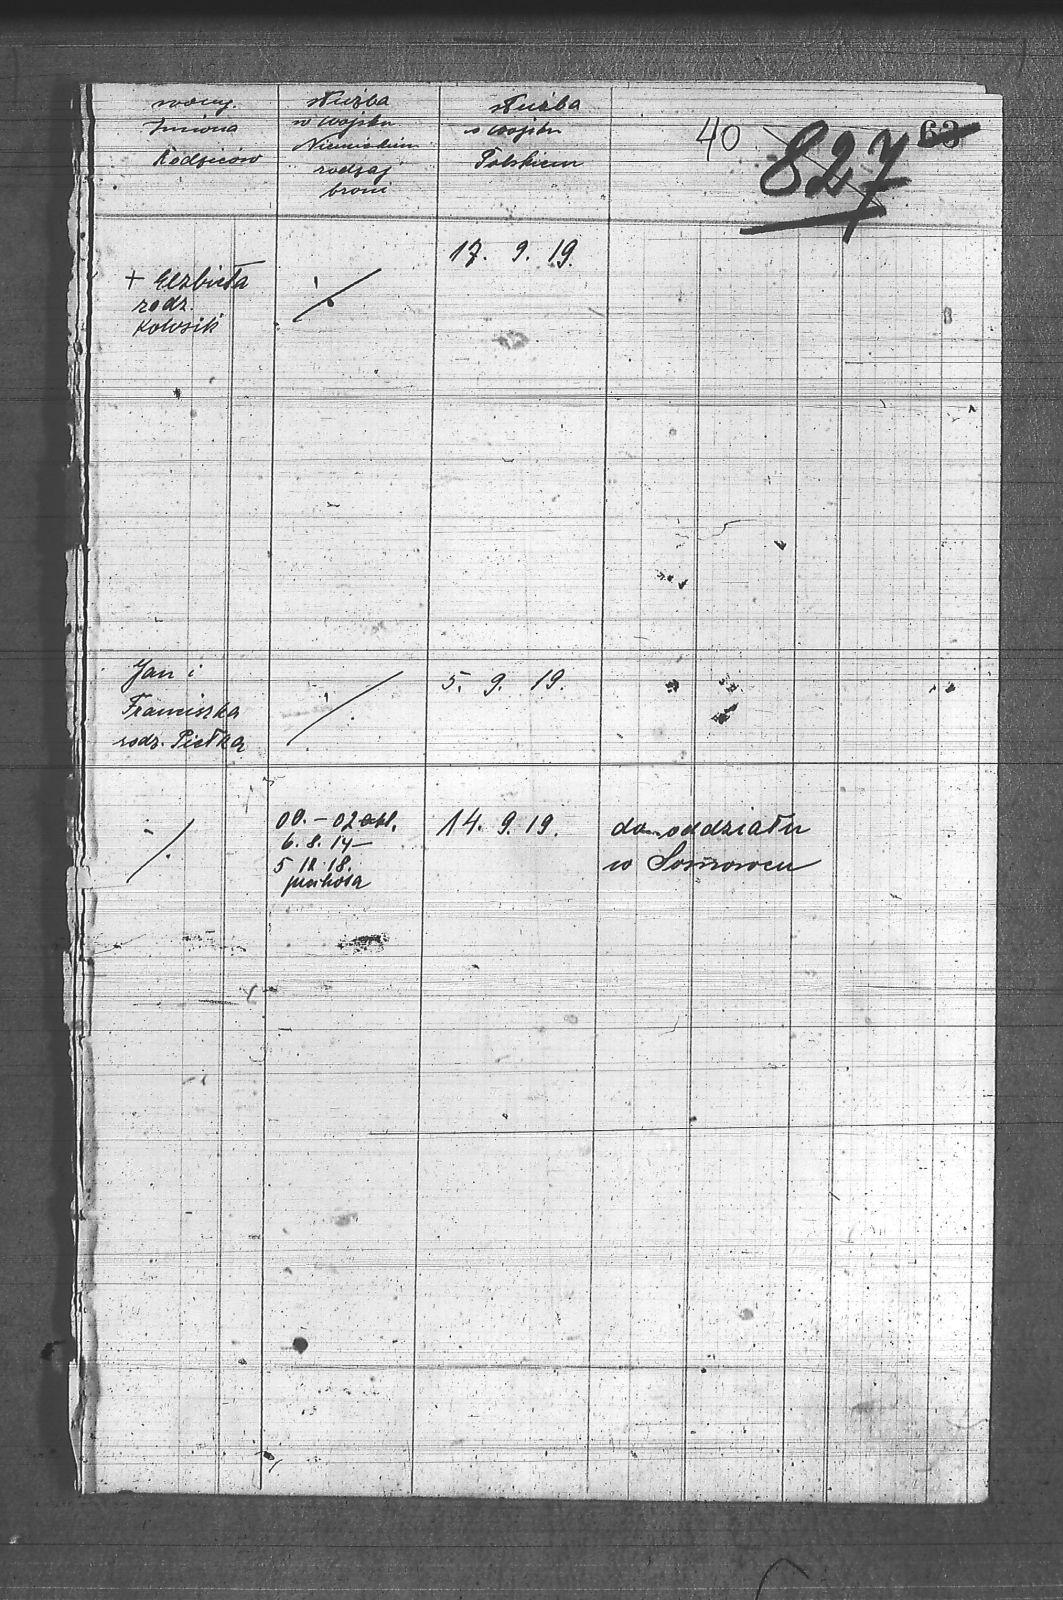 Imiona
Rodziców
służba
w wojsku
Niemieckim
rodzaj
broni
służba
w wojsku
Polskiem
40
827
63
17. 9. 19.
+ Elżbieta
rodz.
Kolosik
Jan i
Franciszka
rodz. Pietka
5. 9. 19.
00. – 02
6. 8. 14 –
5 18.
piechota
14. 9. 19.
do oddziału
w Sosnowcu